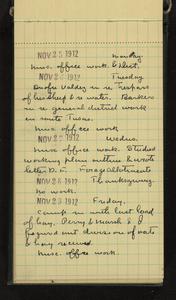 NOV 25 1912 Monday
Misc. office work & Dist.
NOV 26 1912 Tuesday
Valdez in re Trespass
of his sheep & re water.
in re general district work
en route Tusas.
Misc office work
NOV 27 1912 Wednes.
Misc office work. Studied
working plan outline & wrote
letter D.F. Forage allotments
NOV 28 1912 Thanksgiving
No work.
NOV 29 1912 Friday,
Camp in with last load
of hay. Perry & Marsh & I
figured out division of oats
& hay received
Misc. office work.